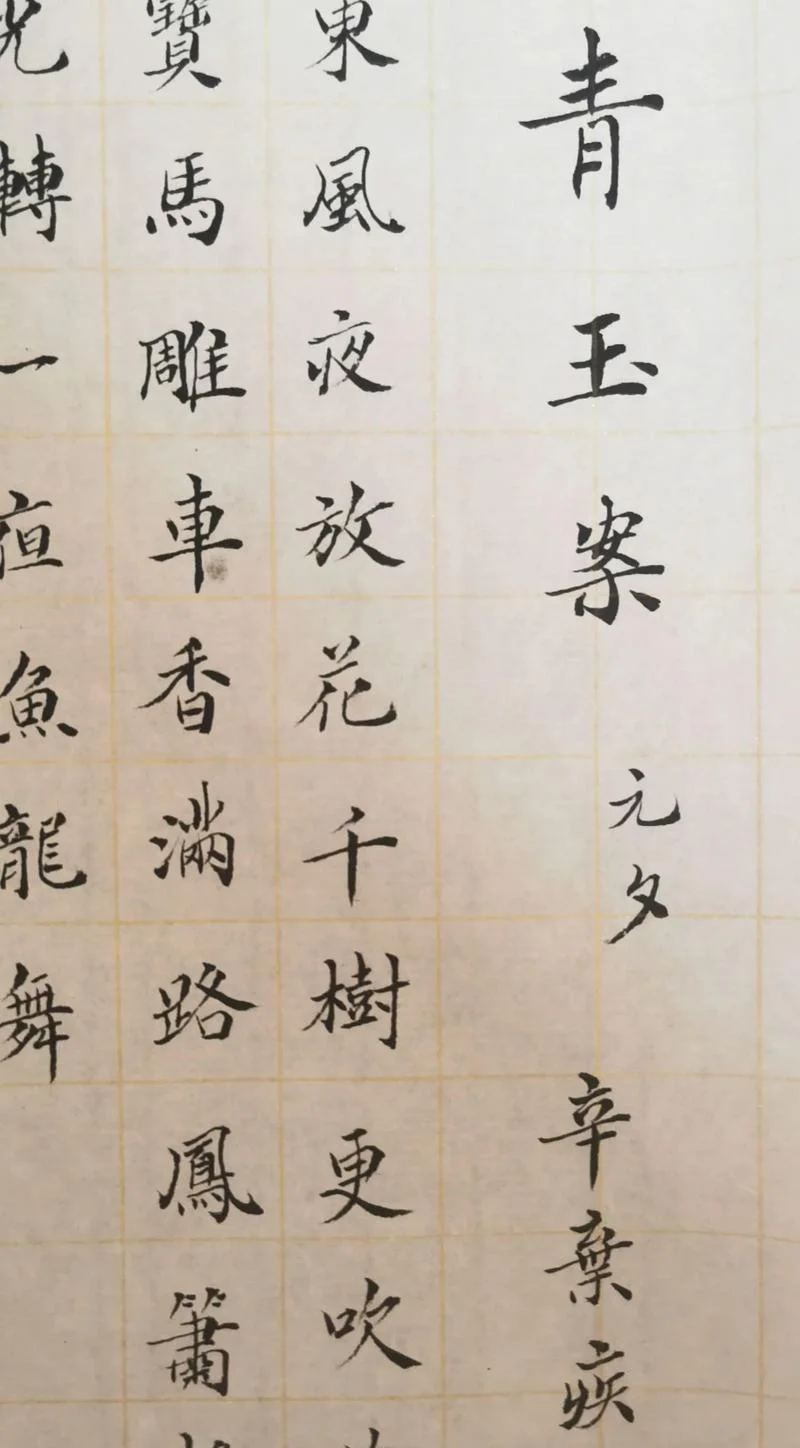 青玉案 元夕 辛棄疾
東風夜放花千樹更吹
寶馬雕車香滿路鳳簫
光轉一亱魚龍舞